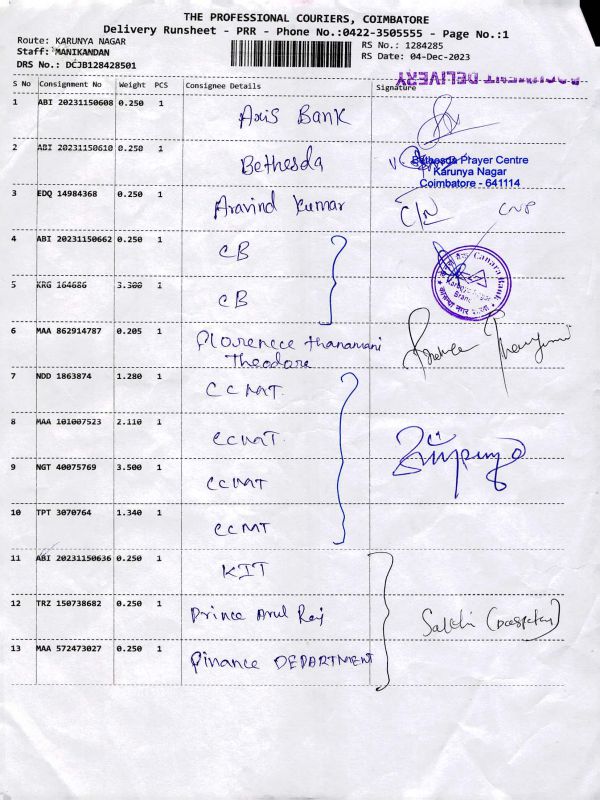 THE PROFESSIONAL COURIERS, COIMBATORE
Delivery Runsheet - PRR - Phone No.:0422-3505555 - Page No.:1
Route: KARUNYA NAGAR
RS No.: 1284285
Staff: MANIKANDAN
RS Date: 04-Dec-2023
DRS No.: DCJB128428501
S No Consignment No Weight PCS Consignee Details Signature
1 ABI 20231150608 0.250 1 Axis Bank
2 ABI 20231150610 0.250 1 Bethesda
Bethesda Prayer Centre
Karunya Nagar
Coimbatore - 641114
3 EDQ 14984368 0.250 1 Aravind Kumar
4 ABI 20231150662 0.250 1 CB
Canara Bank
5 KRG 164686 3.300 1 CB
6 MAA 862914787 0.205 1 Florence Thanamani
Theodore
7 NDD 1863874 1.280 1 CCMT
8 MAA 101007523 2.110 1 CCMT
9 NGT 40075769 3.500 1 CCMT
10 TPT 3070764 1.340 1 CCMT
11 ABI 20231150636 0.250 1 KIT
12 TRZ 150738682 0.250 1 Prince Arul Raj
13 MAA 572473027 0.250 1 Finance DEPARTMENT